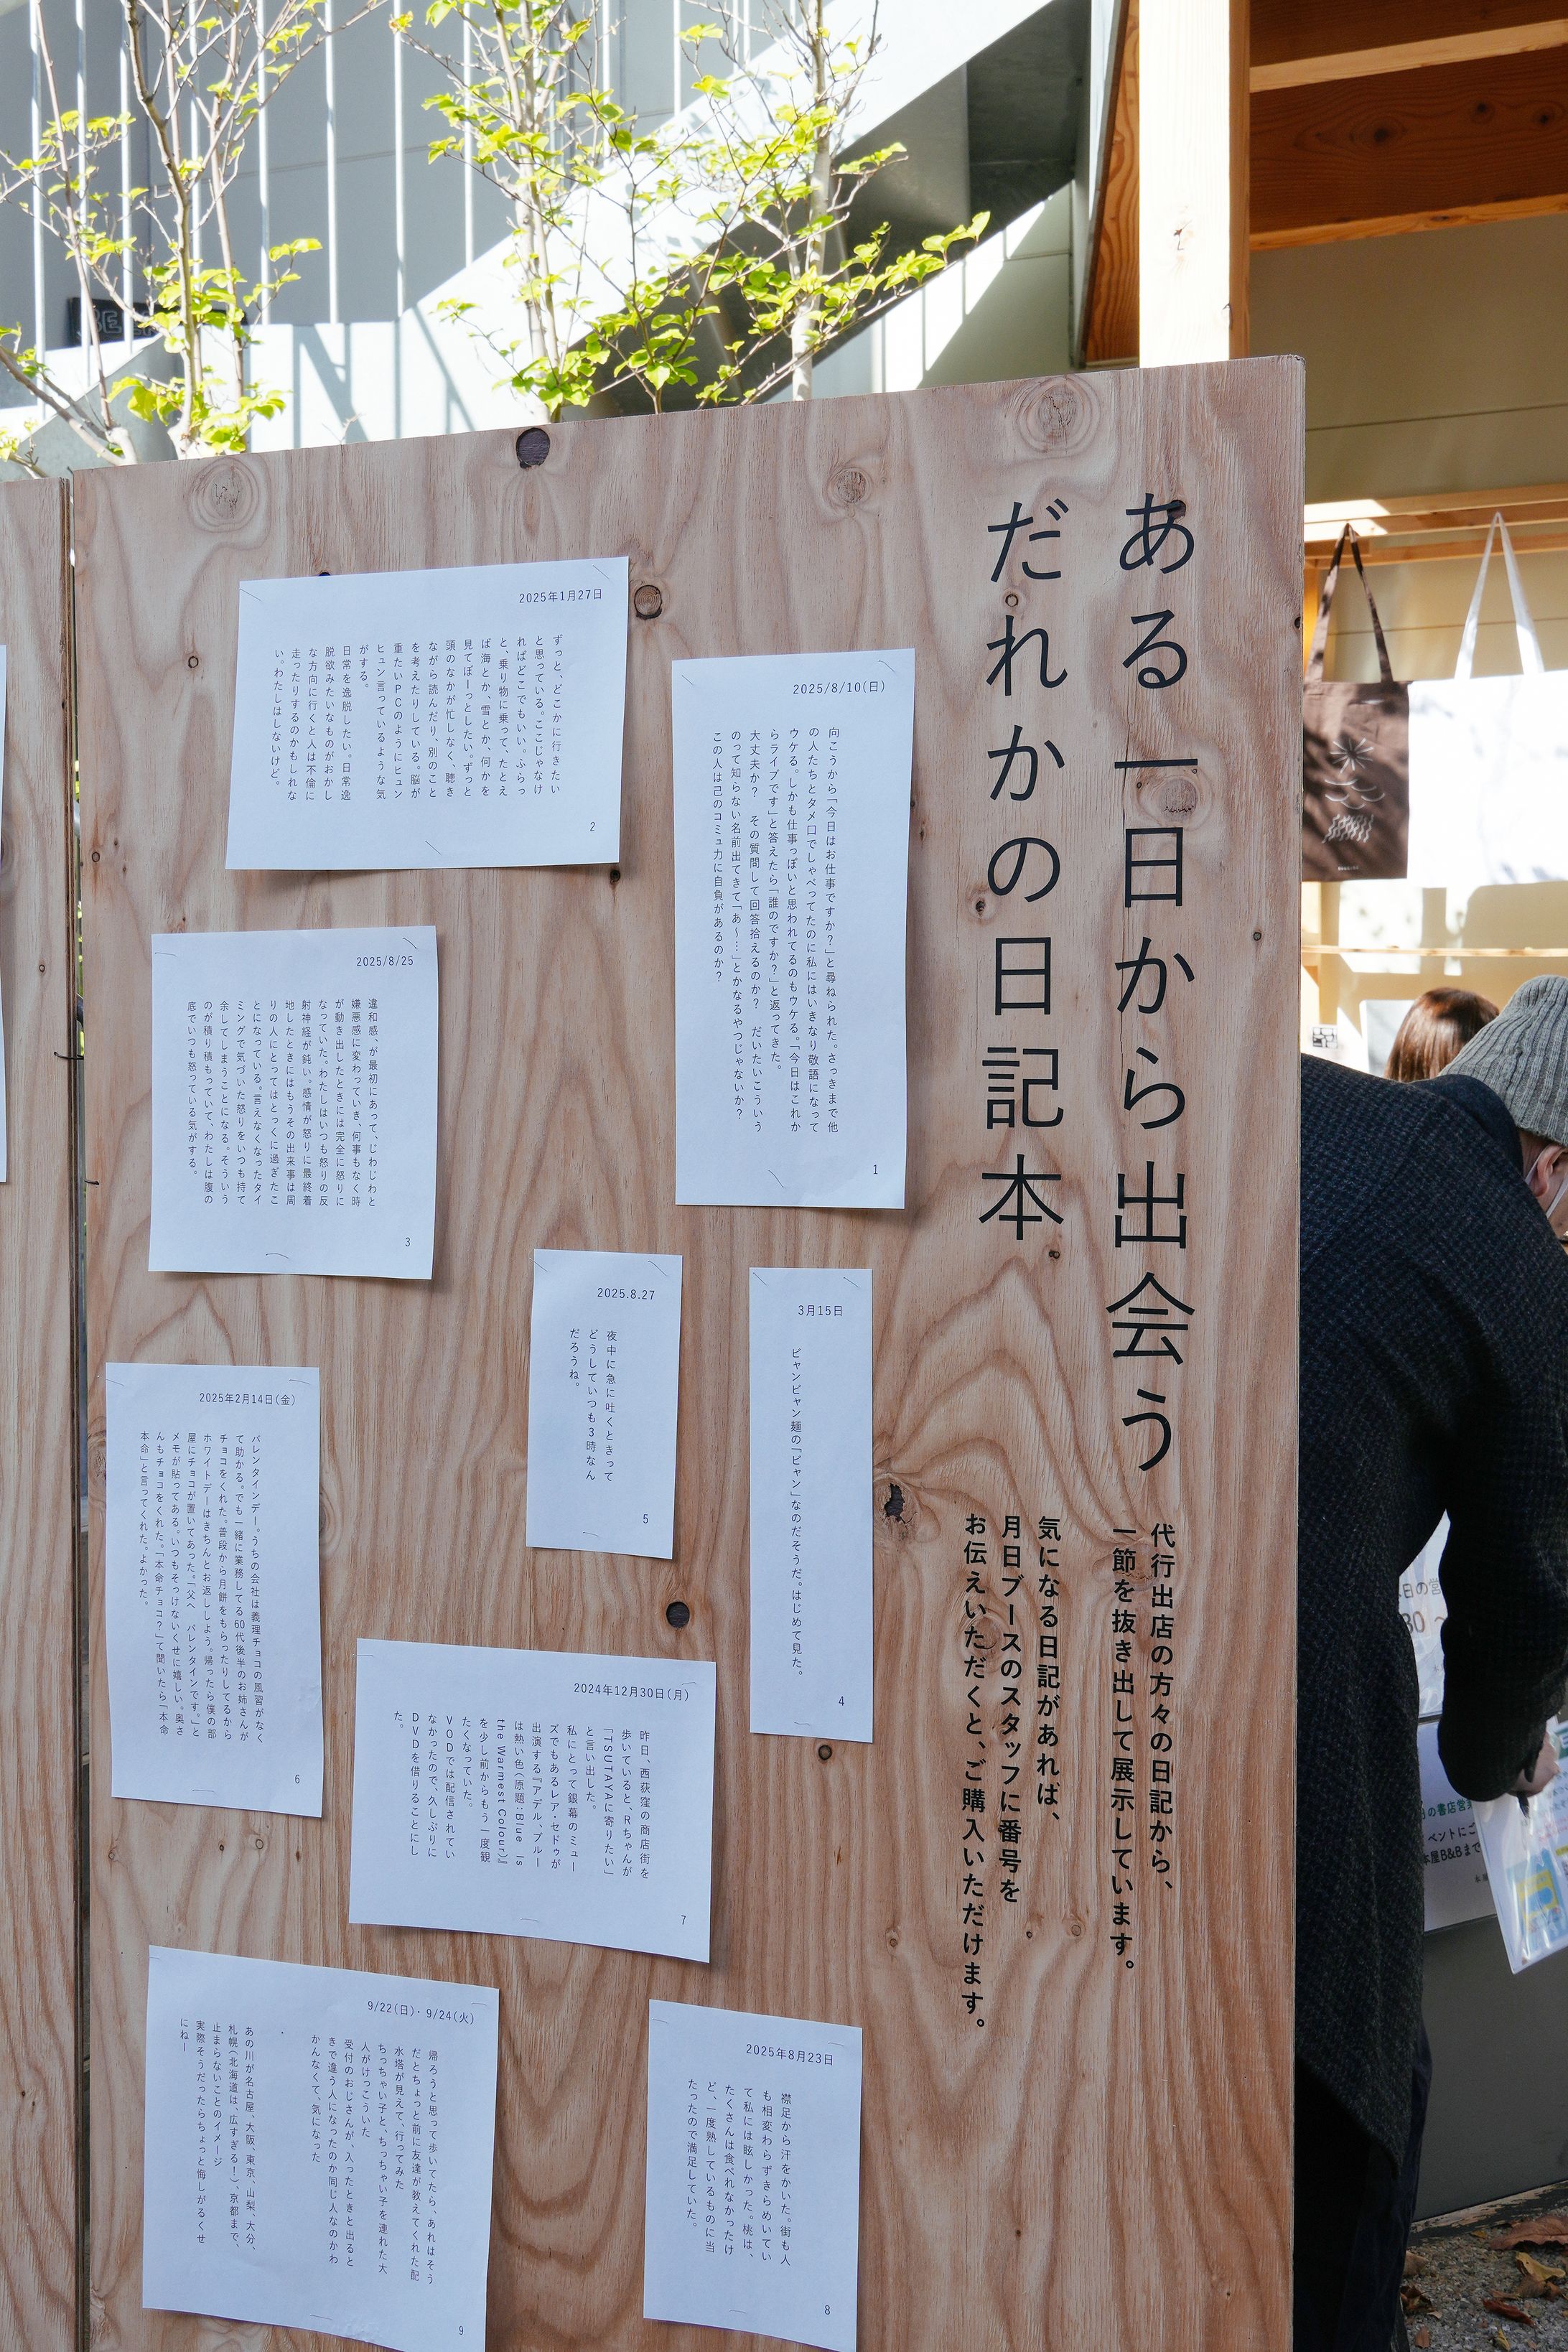 ある一日から出会う
だれかの日記本
代行出店の方々の日記から、
一節を抜き出して展示しています。
気になる日記があれば、
月日ブースのスタッフに番号を
お伝えいただくと、ご購入いただけます。
2025/8/10(日)
向こうから「今日はお仕事ですか？」と尋ねられた。さっきまで他
の人たちとタメ口でしゃべってたのに私にはいきなり敬語になって
ウケる。しかも仕事っぽいと思われてるのもウケる。「今日はこれか
らライブです」と答えたら「誰のですか？」と返ってきた。
大丈夫か？　その質問して回答拾えるのか？　だいたいこういう
のって知らない名前出てきて「あ〜…」とかなるやつじゃないか？
この人は己のコミュ力に自負があるのか？
1
2025年1月27日
ずっと、どこかに行きたい
と思っている。ここじゃなけ
ればどこでもいい。ふらっ
と、乗り物に乗って、たとえ
ば海とか、雪とか、何かを
見てぼーっとしたい。ずっと
頭のなかが忙しなく、聴き
ながら読んだり、別のこと
を考えたりしている。脳が
重たいPCのようにヒュン
ヒュン言っているような気
がする。
日常を逸脱したい。日常逸
脱欲みたいなものがおかし
な方向に行くと人は不倫に
走ったりするのかもしれな
い。わたしはしないけど。
2
2025/8/25
違和感、が最初にあって、じわじわと
嫌悪感に変わっていき、何事もなく時
が動き出したときには完全に怒りに
なっていた。わたしはいつも怒りの反
射神経が鈍い。感情が怒りに最終着
地したときにはもうその出来事は周
りの人にとってはとっくに過ぎたこ
とになっている。言えなくなったタイ
ミングで気づいた怒りをいつも持て
余してしまうことになる。そういう
のが積り積もっていて、わたしは腹の
底でいつも怒っている気がする。
3
3月15日
ビャンビャン麺の「ビャン」なのだそうだ。はじめて見た。
4
2025.8.27
夜中に急に吐くときって
どうしていつも3時なん
だろうね。
5
2025年2月14日(金)
バレンタインデー。うちの会社は義理チョコの風習がなく
て助かる。でも一緒に業務してる60代後半のお姉さんが
チョコをくれた。普段から月餅をもらったりしてるから
ホワイトデーはきちんとお返ししよう。帰ったら僕の部
屋にチョコが置いてあった。「父へ　バレンタインです。」と
メモが貼ってある。いつもそっけないくせに嬉しい。奥さ
んもチョコをくれた。「本命チョコ？」て聞いたら「本命
本命」と言ってくれた。よかった。
6
2024年12月30日(月)
昨日、西荻窪の商店街を
歩いていると、Rちゃんが
「TSUTAYAに寄りたい」
と言い出した。
私にとって銀幕のミュー
ズでもあるレア・セドゥが
出演する『アデル、ブルー
は熱い色(原題:Blue Is
the Warmest Colour)』
を少し前からもう一度観
たくなっていた。
VODでは配信されてい
なかったので、久しぶりに
DVDを借りることにし
た。
7
2025年8月23日
襟足から汗をかいた。街も人
も相変わらずきらめいてい
て私には眩しかった。桃は、
たくさんは食べれなかったけ
ど、一度熟しているものに当
たったので満足していた。
8
9/22(日)・9/24(火)
帰ろうと思って歩いてたら、あれはそう
だとちょっと前に友達が教えてくれた配
水塔が見えて、行ってみた
ちっちゃい子と、ちっちゃい子を連れた大
人がけっこういた
受付のおじさんが、入ったときと出ると
きで違う人になったのか同じ人なのかわ
かんなくて、気になった
あの川が名古屋、大阪、東京、山梨、大分、
札幌(北海道は、広すぎる！)、京都まで、
止まらないことのイメージ
実際そうだったらちょっと悔しがるくせ
にねー
9